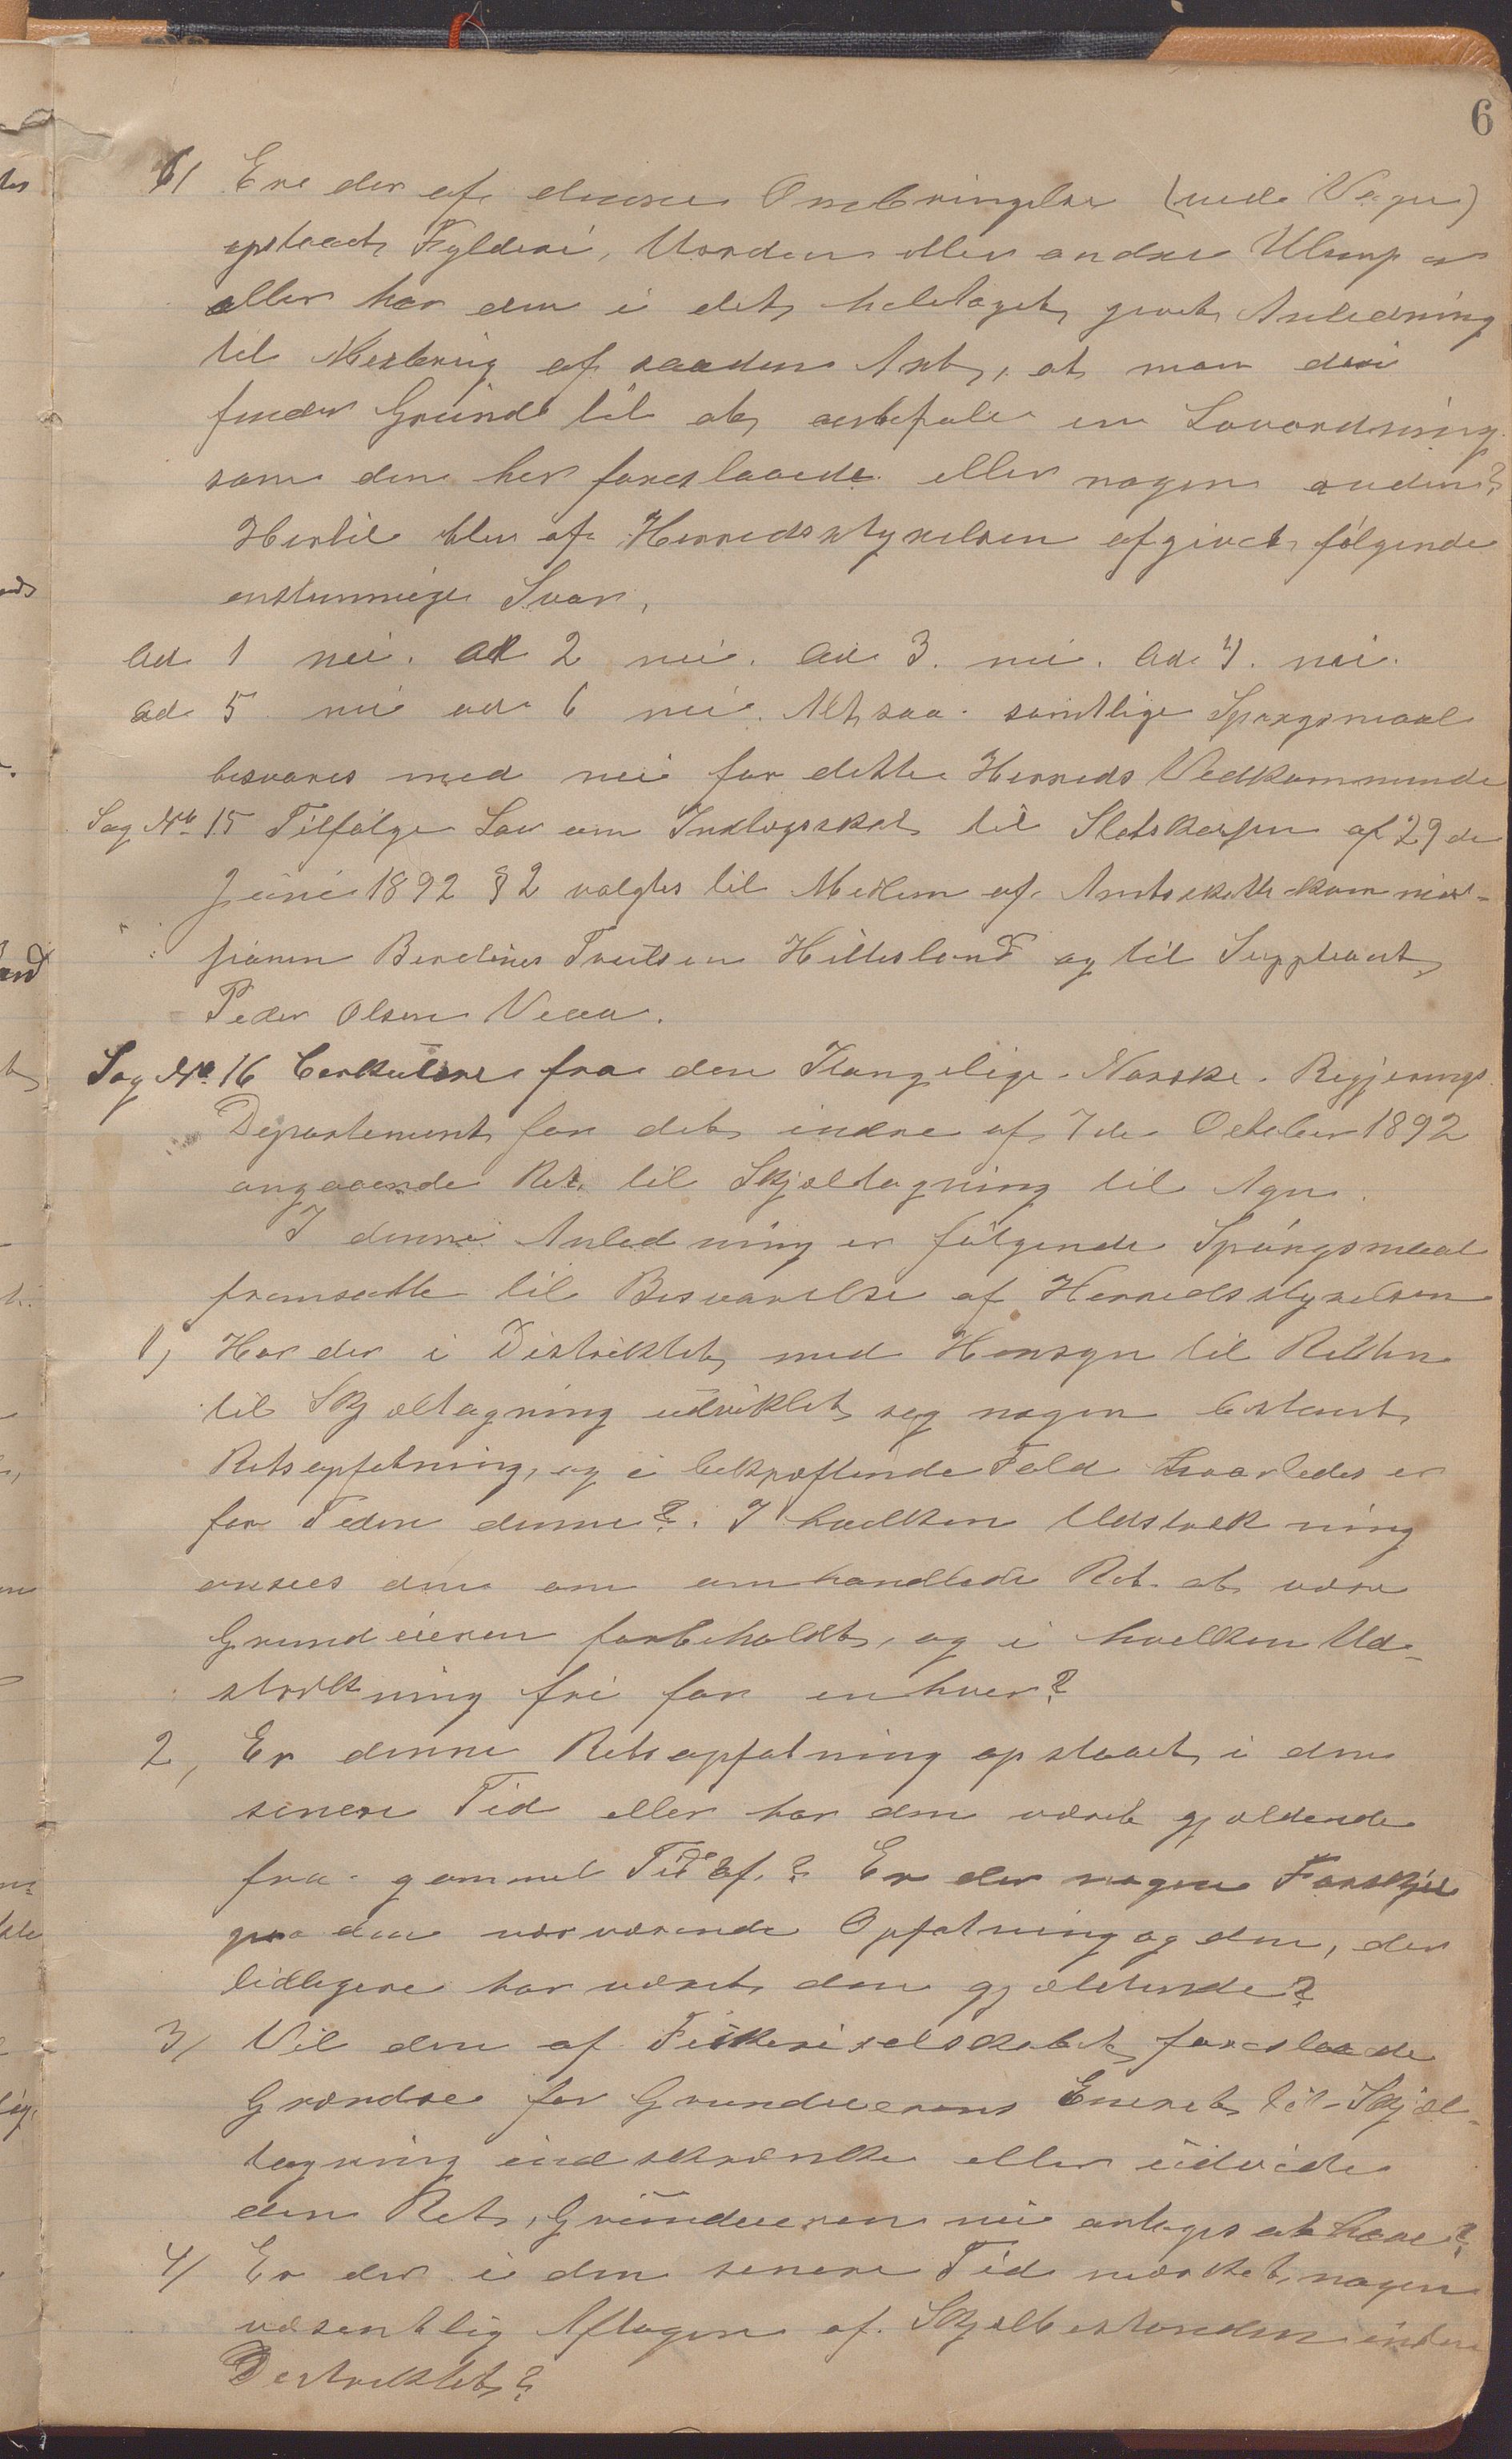 6
6/ Ere der af denne Ombringelse (med Vogn)
opstaaet Fylderi, Uorden eller andre Ulemper
eller har den i det heletaget givet Anledning
til Misbrug af saadan Art, at man deri
finder Grund til at anbefale en Lovordning
som den her foreslaaede eller nogen anden?
Hertil blev af Herredsstyrelsen afgivet følgende
enstemmige Svar,
Ad 1 nei. Ad 2 nei. Ad 3. nei. Ad 4. nei.
Ad 5 nei ad 6 nei. Altsaa samtlige Spørgsmaal
besvares med nei for dette Herreds Vedkommende
Sag No 15 Tilfølge Lov om Indtægsskat til Statskassen af 29de
Juni 1892 § 2 valgtes til Medlem af Amtsskattekommis-
sionen Berdines Truitsen Hillesland og til Suppleant
Peder Olsen Veaa.
Sag No. 16 Cerkulære fra den Kongelige Norske Regjerings
Departement for det indre af 7de October 1892
angaaende Ret til Skjæltagning til Agn.
I denne Anledning er følgende Spørgsmaal
fremsatte til Besvarelse af Herredsstyrelsen
1, Har der i Distriktet med Hensyn til Retten
til Skjæltagning udviklet seg nogen bestemt
Retsopfatning, og i bekræftende Fald hvorledes er
for Tiden denne? I hvilken Udstrækning
ansees den om omhandlede Ret at være
Grundeieren forbeholdt, og i hvilken Ud-
strækning fri for enhver?
2, Er denne Retsopfatning opstaaet i den
senere Tid eller har den været gjældende
fra gammel Tid af? Er der nogen Forskjel
paa den nærværende Opfatning og den, der
tidligere har været den gjældende?
3/ Vil den af Fiskeriselskabet foreslaaede
Grændse for Grundeierens Eneret til Skjæl-
tagning indskrænke eller udvide
den Ret, Grundeieren nu antages at have?
4/ Er der i den senere Tid mærket nogen
væsentlig Aftagen af Skjælbestanden inden
Destriktet?